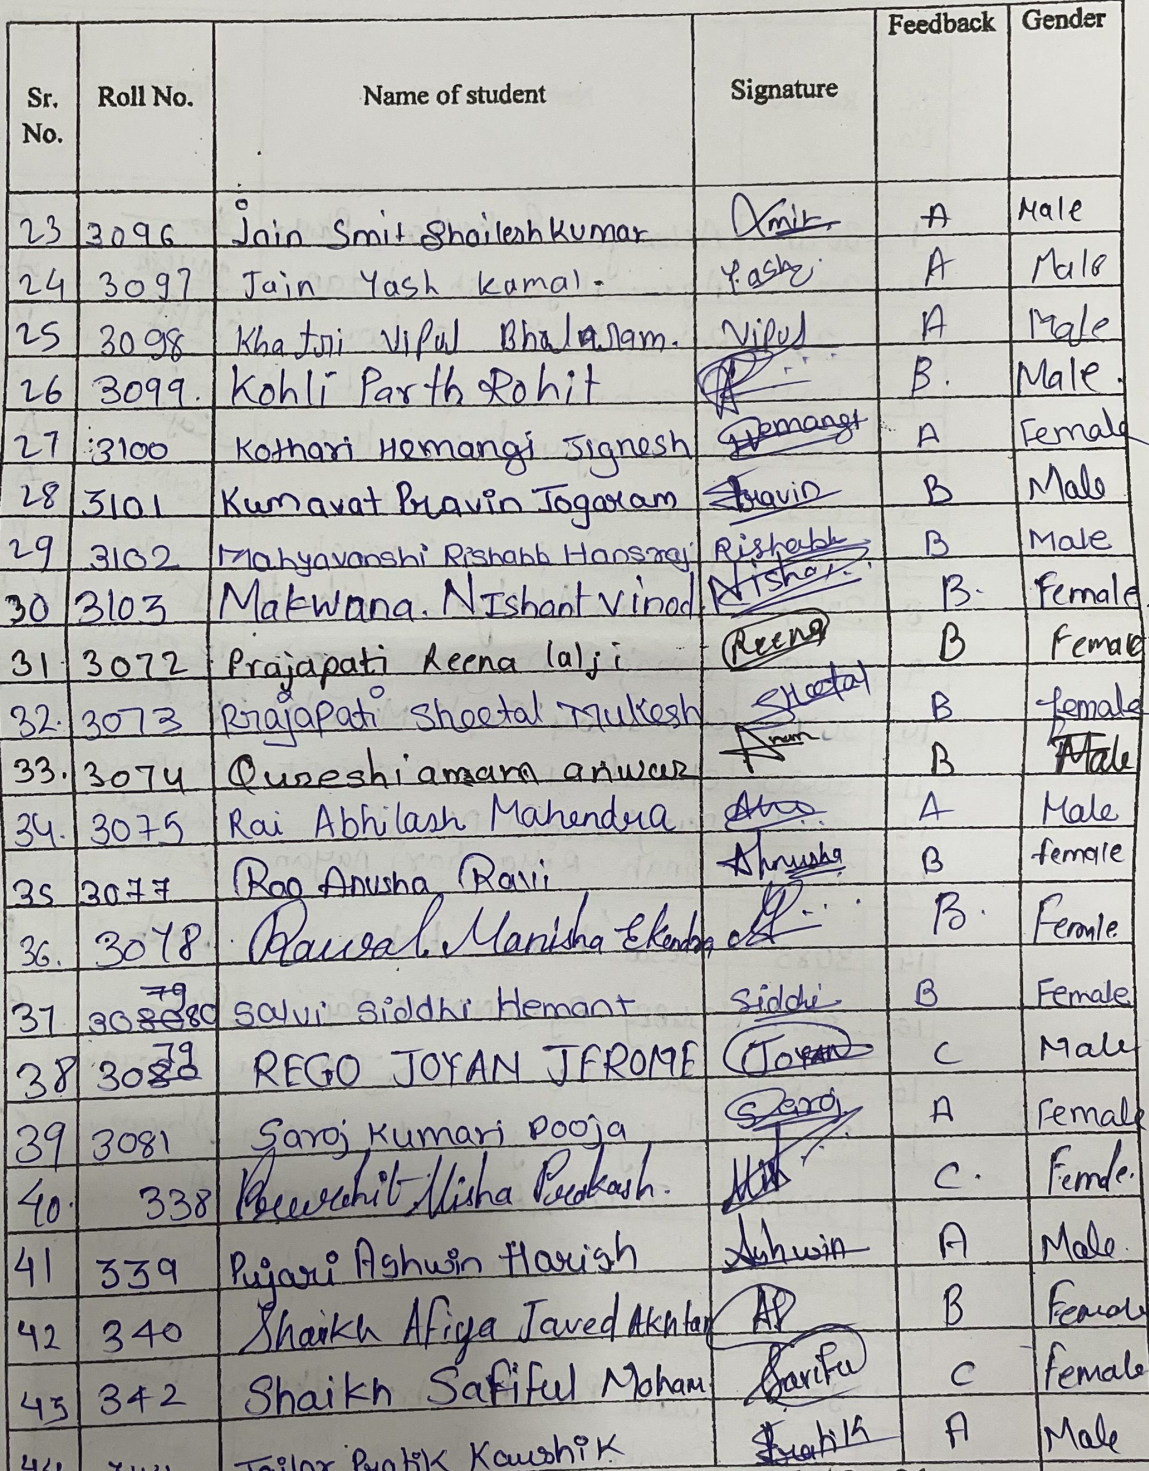 Sr. No. Roll No. Name of student Signature Feedback Gender
23 3096 Jain Smit Shaileshkumar Smit A Male
24 3097 Jain Yash kamal. Yash A Male
25 3098 Khatri Vipul Bhalaram. Vipul A Male
26 3099. Kohli Parth Rohit B. Male.
27 3100 Kothari Hemangi Jignesh Hemangi A Female
28 3101 Kumavat Pravin Jogaram Pravin B Male
29 3102 Mahyavanshi Rishabh Hansraj Rishabh B Male
30 3103 Makwana. Nishant Vinod B. Female
31 3072 Prajapati Reena lalji Reena B Female
32. 3073 Prajapati Sheetal Mukesh Sheetal B female
33. 3074 Qureshi amara anwar B Male
34. 3075 Rai Abhilash Mahendra A Male
35 3077 Rao Anusha Ravi Anusha B female
36. 3078 Rawal Manisha B. Female
37 79 Salvi Siddhi Hemant Siddhi B Female
38 3079 REGO JOYAN JEROME Joyan C Male
39 3081 Saroj Kumari Pooja Saroj A Female
40. 338 Misha Prakash. C. Female.
41 339 Pujari Ashwin Harish Ashwin A Male.
42 340 Shaikh Afiya Javed Akhtar B Female
43 342 Shaikh Safiful Moham C Female
Pratik Kaushik Pratik A Male